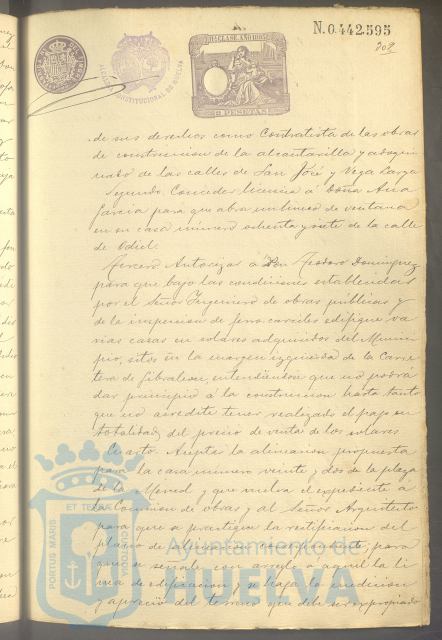 N. 0.442.595
202
11ª CLASE. AÑO 1885
2 PESETAS
ALCALDIA CONSTITUCIONAL DE HUELVA
de sus derechos como Contratista de las obras
de construccion de la alcantarilla y adoqui
nado de las calles de San José y Vega Larga
Segundo. Conceder licencia á Doña Ana
Garcia para que abra un hueco de ventana
en su casa número ochenta y siete de la calle
de Odiel.
Tercero. Autorizar á Don Teodoro Dominguez
para que bajo las condiciones establecidas
por el Señor Ingeniero de obras publicas y
de la inspeccion de ferro-carriles edifique va
rias casas en solares adquiridos del Munici
pio, sitos en la margen izquierda de la Carre
tera de Gibraleon, entendiendose que no podrá
dar principio á la construccion hasta tanto
que no acredite tener realizado el pago en
totalidad del precio de venta de los solares
Cuarto. Acepta la alineacion propuesta
para la casa número veinte y dos de la plaza
de la Merced, y que vuelva el expediente á
la Comision de obras y al Señor Arquitecto
para que se practique la rectificacion del
plano de alineacion correspondiente, para
que se señale con arreglo á aquel la li
nea de edificacion y se haga la medicion
y aprecio del terreno que debe ser expropiado
PORTUS MARIS ET TERRAE CUSTODIA
Ayuntamiento de
HUELVA